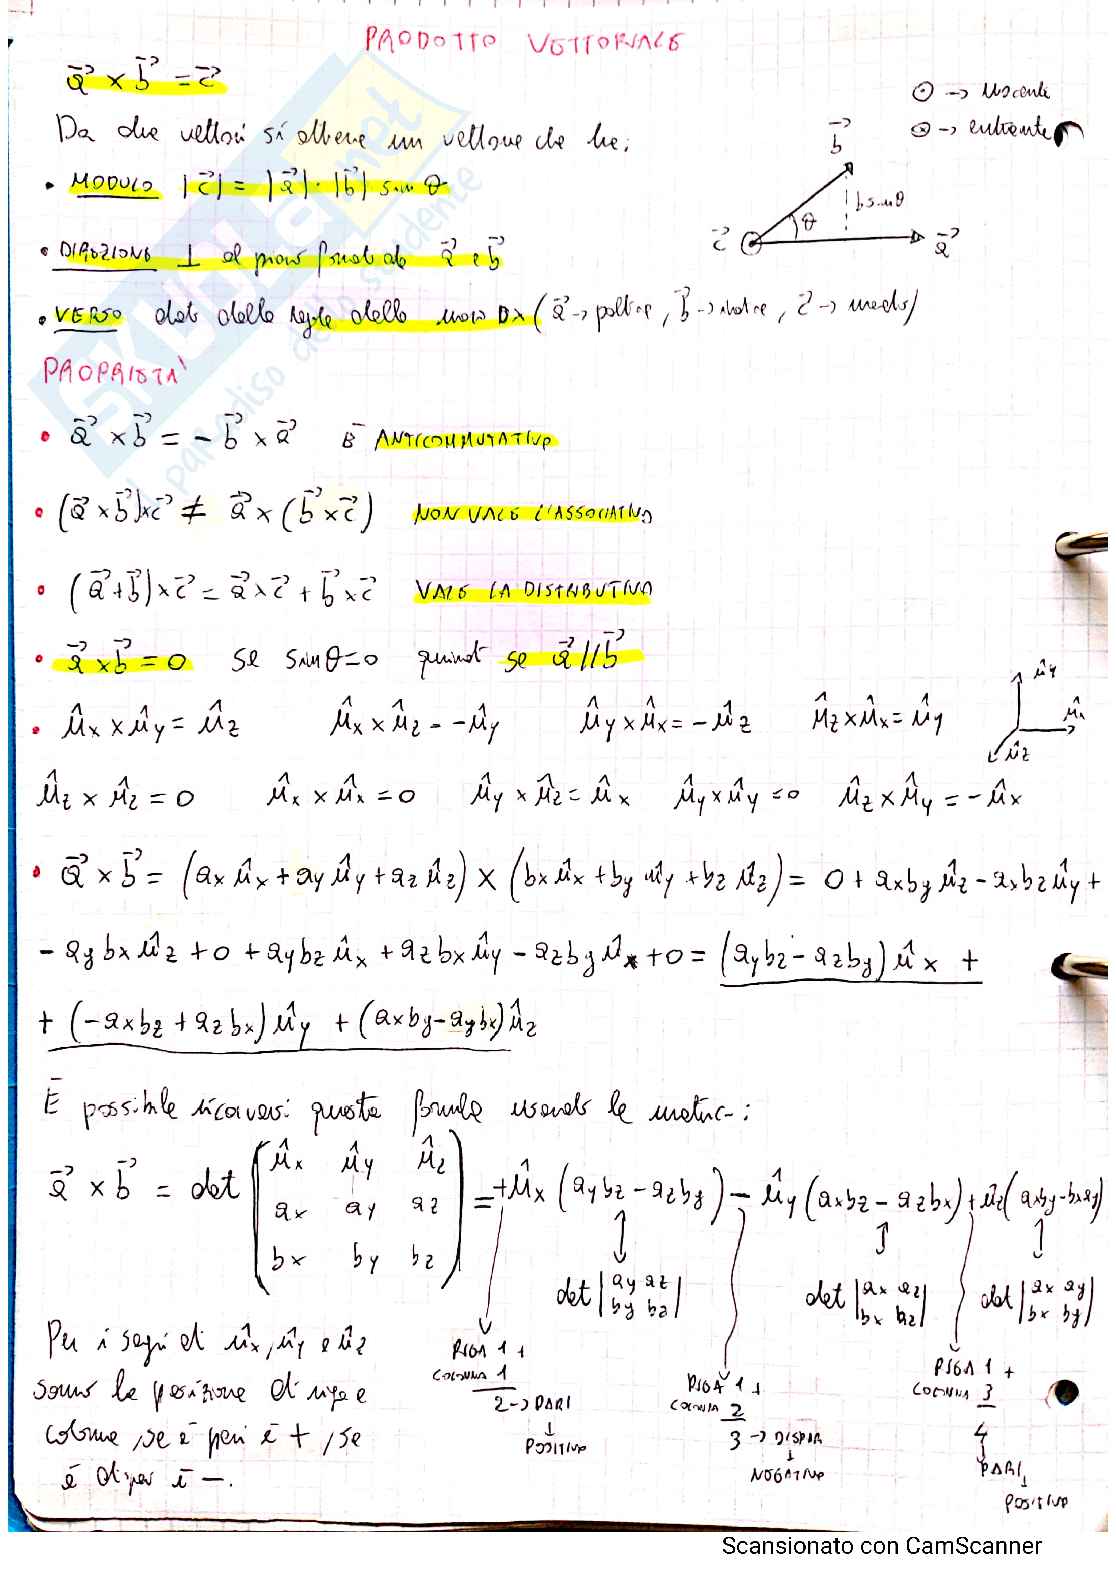 PRODOTTO VETTORIALE
a⃗ × b⃗ = c⃗
⊙ → uscente
⊗ → entrante
Da due vettori si ottiene un vettore che ha:
• MODULO |c⃗| = |a⃗| · |b⃗| sin θ
b⃗
b sinθ
θ
c⃗
a⃗
• DIREZIONE ⊥ al piano formato da a⃗ e b⃗
• VERSO dato dalla regola della mano DX (a⃗ → pollice, b⃗ → indice, c⃗ → medio)
PROPRIETA'
• a⃗ × b⃗ = - b⃗ × a⃗ È ANTICOMMUTATIVO
• (a⃗ × b⃗) × c⃗ ≠ a⃗ × (b⃗ × c⃗) NON VALE L'ASSOCIATIVA
• (a⃗ + b⃗) × c⃗ = a⃗ × c⃗ + b⃗ × c⃗ VALE LA DISTRIBUTIVA
• a⃗ × b⃗ = 0 se sinθ = 0 quindi se a⃗ // b⃗
• û_x × û_y = û_z û_x × û_z = -û_y û_y × û_x = -û_z û_z × û_x = û_y
û_y
û_x
û_z
û_z × û_z = 0 û_x × û_x = 0 û_y × û_z = û_x û_y × û_y = 0 û_z × û_y = -û_x
• a⃗ × b⃗ = (a_x û_x + a_y û_y + a_z û_z) × (b_x û_x + b_y û_y + b_z û_z) = 0 + a_x b_y û_z - a_x b_z û_y +
- a_y b_x û_z + 0 + a_y b_z û_x + a_z b_x û_y - a_z b_y û_x + 0 = (a_y b_z - a_z b_y) û_x +
+ (-a_x b_z + a_z b_x) û_y + (a_x b_y - a_y b_x) û_z
È possibile ricavarsi questa formula usando le matrici:
a⃗ × b⃗ = det ( û_x û_y û_z
a_x a_y a_z
b_x b_y b_z ) = + û_x (a_y b_z - a_z b_y) - û_y (a_x b_z - a_z b_x) + û_z (a_x b_y - b_x a_y)
det | a_y a_z
b_y b_z |
det | a_x a_z
b_x b_z |
det | a_x a_y
b_x b_y |
Per i segni di û_x, û_y e û_z
sommo la posizione di riga e
colonna, se è pari è +, se
è dispari è -.
RIGA 1 +
COLONNA 1
2 → PARI
↓
POSITIVO
RIGA 1 +
COLONNA 2
3 → DISPARI
↓
NEGATIVO
RIGA 1 +
COLONNA 3
4
↓
PARI
↓
POSITIVO
SKUOLA.net
il paradiso dello studente
Scansionato con CamScanner